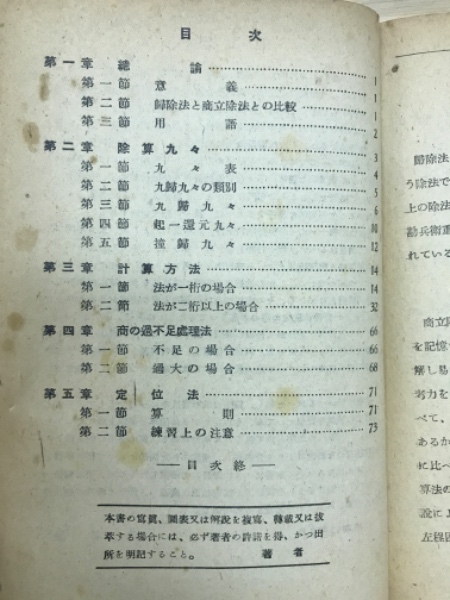 目次
第一章 總論 1
第一節 意義 1
第二節 歸除法と商立除法との比較 1
第三節 用語 2
第二章 除算九々 3
第一節 九々表 4
第二節 九歸九々の類別 5
第三節 九歸九々 6
第四節 起一還元九々 10
第五節 撞歸九々 12
第三章 計算方法 14
第一節 法が一桁の場合 14
第二節 法が二桁以上の場合 32
第四章 商の過不足處理法 66
第一節 不足の場合 66
第二節 過大の場合 68
第五章 定位法 71
第一節 算則 71
第二節 練習上の注意 73
——目次終——
本書の寫眞、圖表又は解說を複寫、轉載又は拔
萃する場合には、必ず著者の許諾を得、かつ出
所を明記すること。 著者
歸除法
う除法で
上の除法
勘兵衞重
れている
商立除
を記憶
解し易
考力を
べて、
あるか
に比べ
算法の
說によ